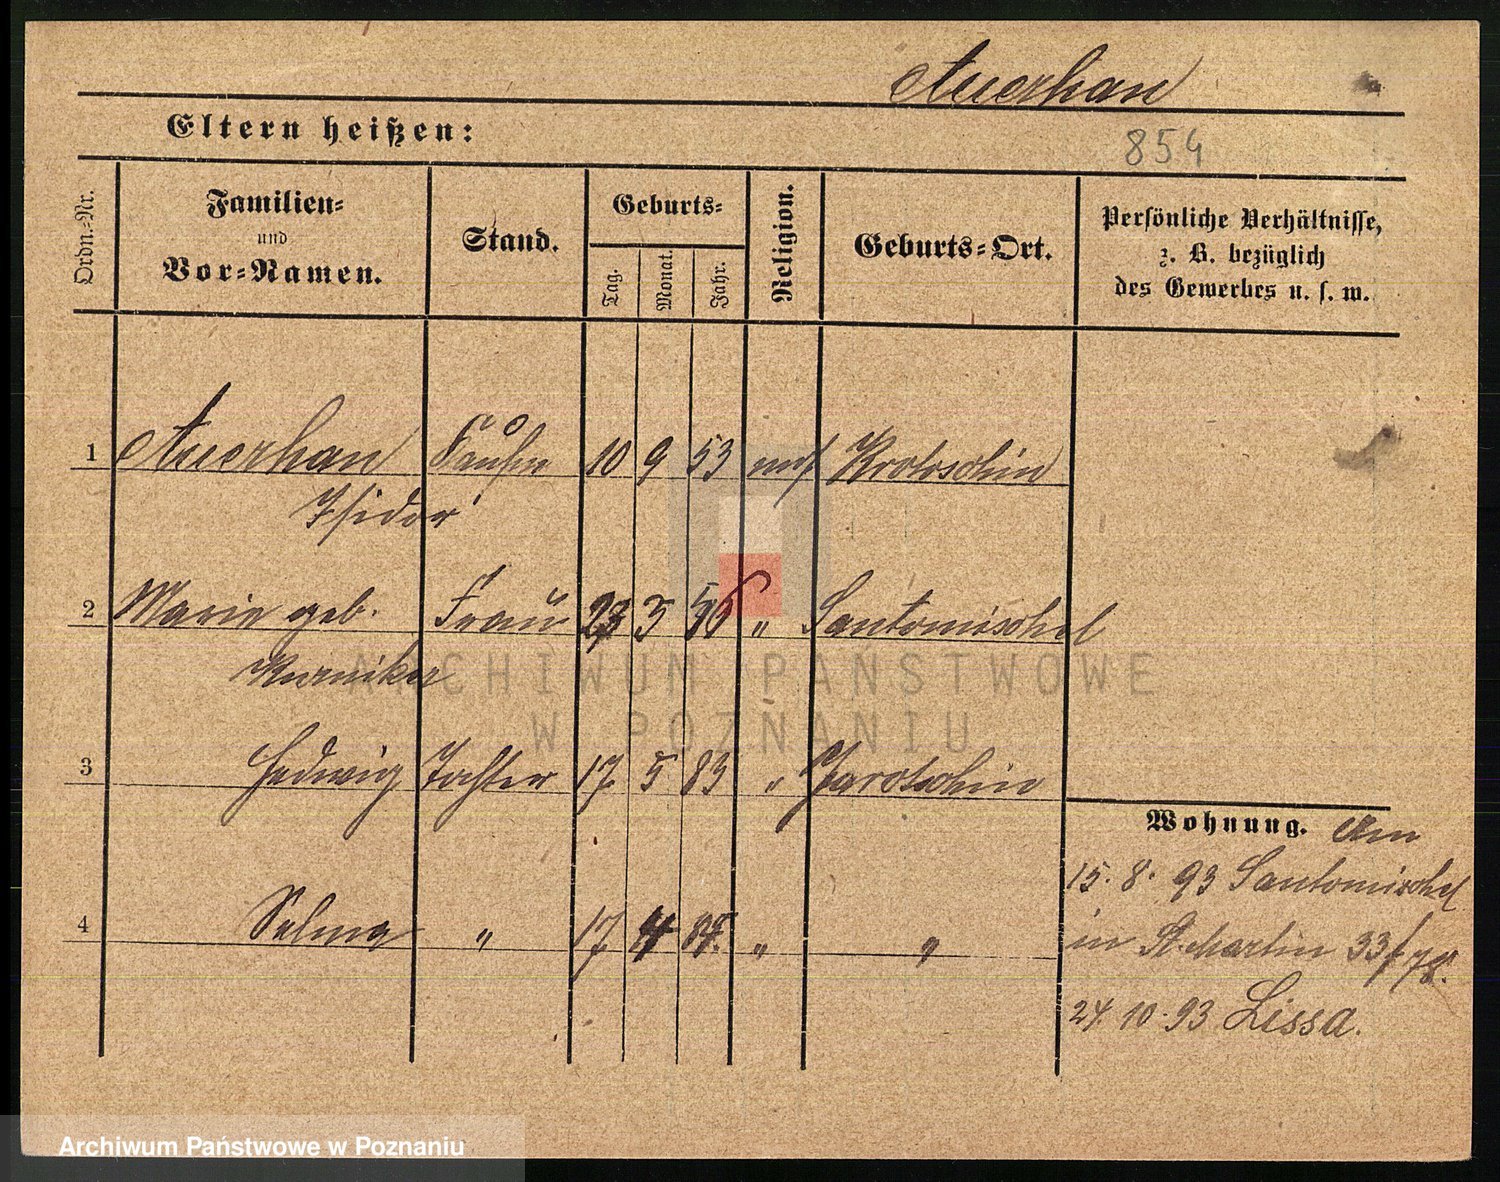 Auerhan
Eltern heißen:
854
Ordn.-Nr.
Familien-
und
Vor-Namen.
Stand.
Geburts-
Tag.
Monat.
Jahr.
Religion.
Geburts-Ort.
Persönliche Verhältnisse,
z. B. bezüglich
des Gewerbes u. s. w.
1 Auerhan 10 9 53 mos Krotoschin
Isidor
2 Marie geb. Frau 23 3 " Santomischel
Kurniker
3 Hedwig Tochter 17 5 83 " Jarotschin
Wohnung. Am
15. 8. 93 Santomischel
4 Selma " 17 4 " "
in St. Martin 33/78.
24. 10. 93 Lissa.
ARCHIWUM PAŃSTWOWE
W POZNANIU
Archiwum Państwowe w Poznaniu